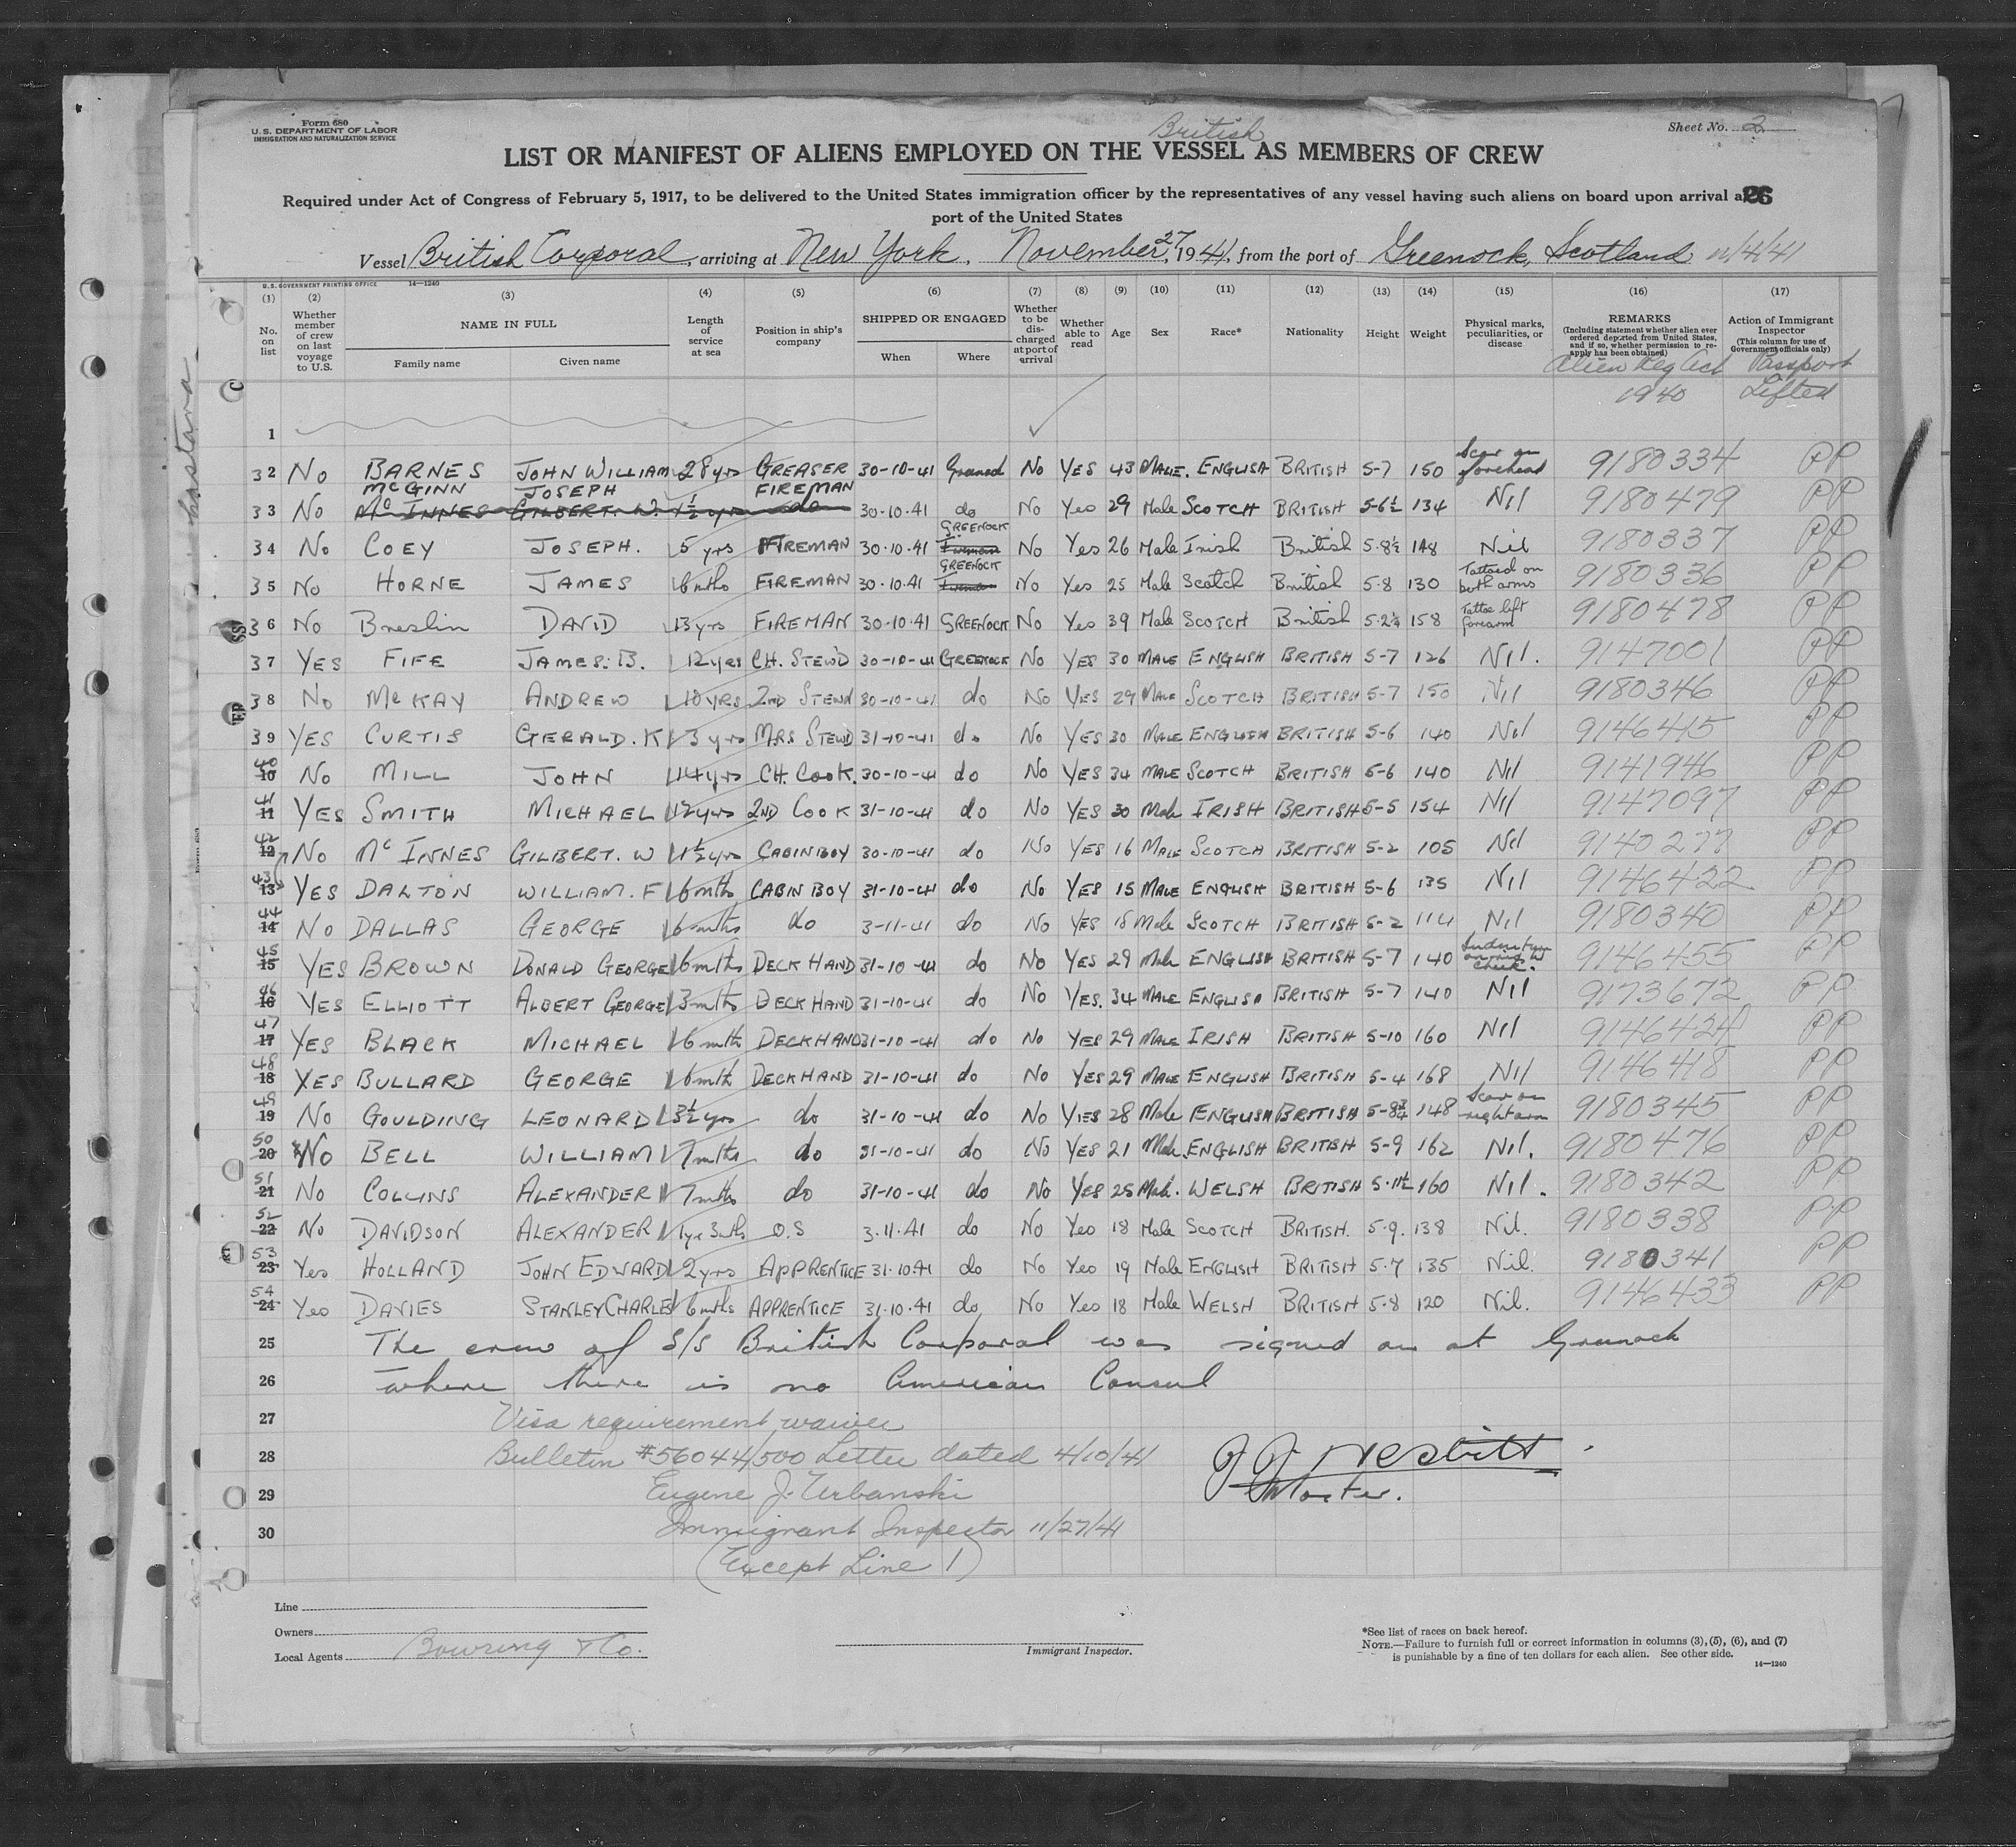 Form 680
U.S. DEPARTMENT OF LABOR
IMMIGRATION AND NATURALIZATION SERVICE
Sheet No. 2
British
LIST OR MANIFEST OF ALIENS EMPLOYED ON THE VESSEL AS MEMBERS OF CREW
Required under Act of Congress of February 5, 1917, to be delivered to the United States immigration officer by the representatives of any vessel having such aliens on board upon arrival a
26
port of the United States
Vessel British Corporal, arriving at New York. November 27, 1941, from the port of Greenock, Scotland 11/4/41
U.S. GOVERNMENT PRINTING OFFICE 14—1240
(1) (2) (3) (4) (5) (6) (7) (8) (9) (10) (11) (12) (13) (14) (15) (16) (17)
No. on list
Whether member of crew on last voyage to U.S.
NAME IN FULL
Family name Given name
Length of service at sea
Position in ship's company
SHIPPED OR ENGAGED
When Where
Whether to be discharged at port of arrival
Whether able to read
Age
Sex
Race*
Nationality
Height
Weight
Physical marks, peculiarities, or disease
REMARKS
(Including statement whether alien ever ordered deported from United States, and if so, whether permission to reapply has been obtained)
Alien Reg Act 1940
Action of Immigrant Inspector
(This column for use of Government officials only)
Passport Lifted
1
32 No BARNES JOHN WILLIAM 28 yrs GREASER 30-10-41 Greenock No YES 43 MALE. ENGLISH BRITISH 5-7 150 Scar on forehead 9180334 PP
McGINN JOSEPH FIREMAN
33 No Mc INNES GILBERT. W. 1½ yrs do 30.10.41 do No Yes 29 Male SCOTCH BRITISH 5-6½ 134 Nil 9180479 PP
34 No COEY JOSEPH. 5 yrs FIREMAN 30.10.41 GREENOCK Fireman No Yes 26 Male Irish British 5.8½ 148 Nil 9180337 PP
35 No HORNE JAMES 6 mths FIREMAN 30.10.41 GREENOCK Fireman No Yes 25 Male Scotch British 5.8 130 Tattooed on both arms 9180336 PP
36 No Breslin DAVID 13 yrs FIREMAN 30.10.41 GREENOCK No Yes 39 Male SCOTCH British 5.2½ 158 Tattoo left forearm 9180478 PP
37 YES FIFE JAMES. B. 12 yrs CH. STEWD 30-10-41 GREENOCK No YES 30 MALE ENGLISH BRITISH 5-7 126 Nil. 9147001 PP
38 No McKAY ANDREW 10 YRS 2ND STEWD 30-10-41 do No YES 29 MALE SCOTCH BRITISH 5-7 150 Nil 9180346 PP
39 YES CURTIS GERALD. K 3 yrs MRS STEWD 31-10-41 do No YES 30 MALE ENGLISH BRITISH 5-6 140 Nil 9146415 PP
40 10 No MILL JOHN 14 yrs CH. COOK. 30-10-41 do No YES 34 MALE SCOTCH BRITISH 5-6 140 Nil 9141946 PP
41 11 YES SMITH MICHAEL 12 yrs 2ND COOK 31-10-41 do No YES 30 Male IRISH BRITISH 5-5 154 Nil 9147097 PP
42 12 No Mc INNES GILBERT. W 1½ yrs CABIN BOY 30-10-41 do No YES 16 MALE SCOTCH BRITISH 5-2 105 Nil 9140277 PP
43 13 YES DALTON WILLIAM. F 6 mths CABIN BOY 31-10-41 do No YES 15 MALE ENGLISH BRITISH 5-6 135 Nil 9146422 PP
44 14 No DALLAS GEORGE 6 mths do 3-11-41 do No YES 18 Male SCOTCH BRITISH 5-2 114 Nil 9180340 PP
45 15 YES BROWN DONALD GEORGE 6 mths DECK HAND 31-10-41 do No YES 29 Male ENGLISH BRITISH 5-7 140 cheek. 9146455 PP
46 16 YES ELLIOTT ALBERT GEORGE 3 mths DECK HAND 31-10-41 do No YES. 34 MALE ENGLISH BRITISH 5-7 140 Nil 9173672 PP
47 17 YES BLACK MICHAEL 6 mths DECK HAND 31-10-41 do No YES 29 MALE IRISH BRITISH 5-10 160 Nil 9146424 PP
48 18 YES BULLARD GEORGE 6 mths DECK HAND 31-10-41 do No YES 29 MALE ENGLISH BRITISH 5-4 168 Nil 9146418 PP
49 19 No GOULDING LEONARD 3½ yrs do 31-10-41 do No YES 28 Male ENGLISH BRITISH 5-8¾ 148 Scar on right arm 9180345 PP
50 20 No BELL WILLIAM 7 mths do 31-10-41 do No YES 21 Male. ENGLISH BRITISH 5-9 162 Nil. 9180476 PP
51 21 No COLLINS ALEXANDER 7 mths do 31-10-41 do No YES 25 Male. WELSH BRITISH 5.11½ 160 Nil. 9180342 PP
52 22 No DAVIDSON ALEXANDER 1 yr 3 mths O.S 3.11.41 do No Yes 18 Male SCOTCH BRITISH. 5.9. 138 Nil. 9180338 PP
53 23 Yes HOLLAND JOHN EDWARD 2 yrs APPRENTICE 31.10.41 do No Yes 19 Male ENGLISH BRITISH 5.7 135 Nil. 9180341 PP
54 24 Yes DAVIES STANLEY CHARLES 6 mths APPRENTICE 31.10.41 do No Yes 18 Male WELSH BRITISH 5.8 120 Nil. 9146433 PP
25 The crew of S/S British Corporal was signed on at Greenock
26 where there is no American Consul
27 Visa requirement waiver
28 Bulletin #56044/500 Letter dated 4/10/41
J J Nesbitt.
29 Eugene J. Urbanski
Master.
30 Immigrant Inspector 11/27/41
(Except Line 1)
Line
Owners
Local Agents Bowring & Co.
Immigrant Inspector.
*See list of races on back hereof.
NOTE.—Failure to furnish full or correct information in columns (3), (5), (6), and (7)
is punishable by a fine of ten dollars for each alien. See other side.
14—1240